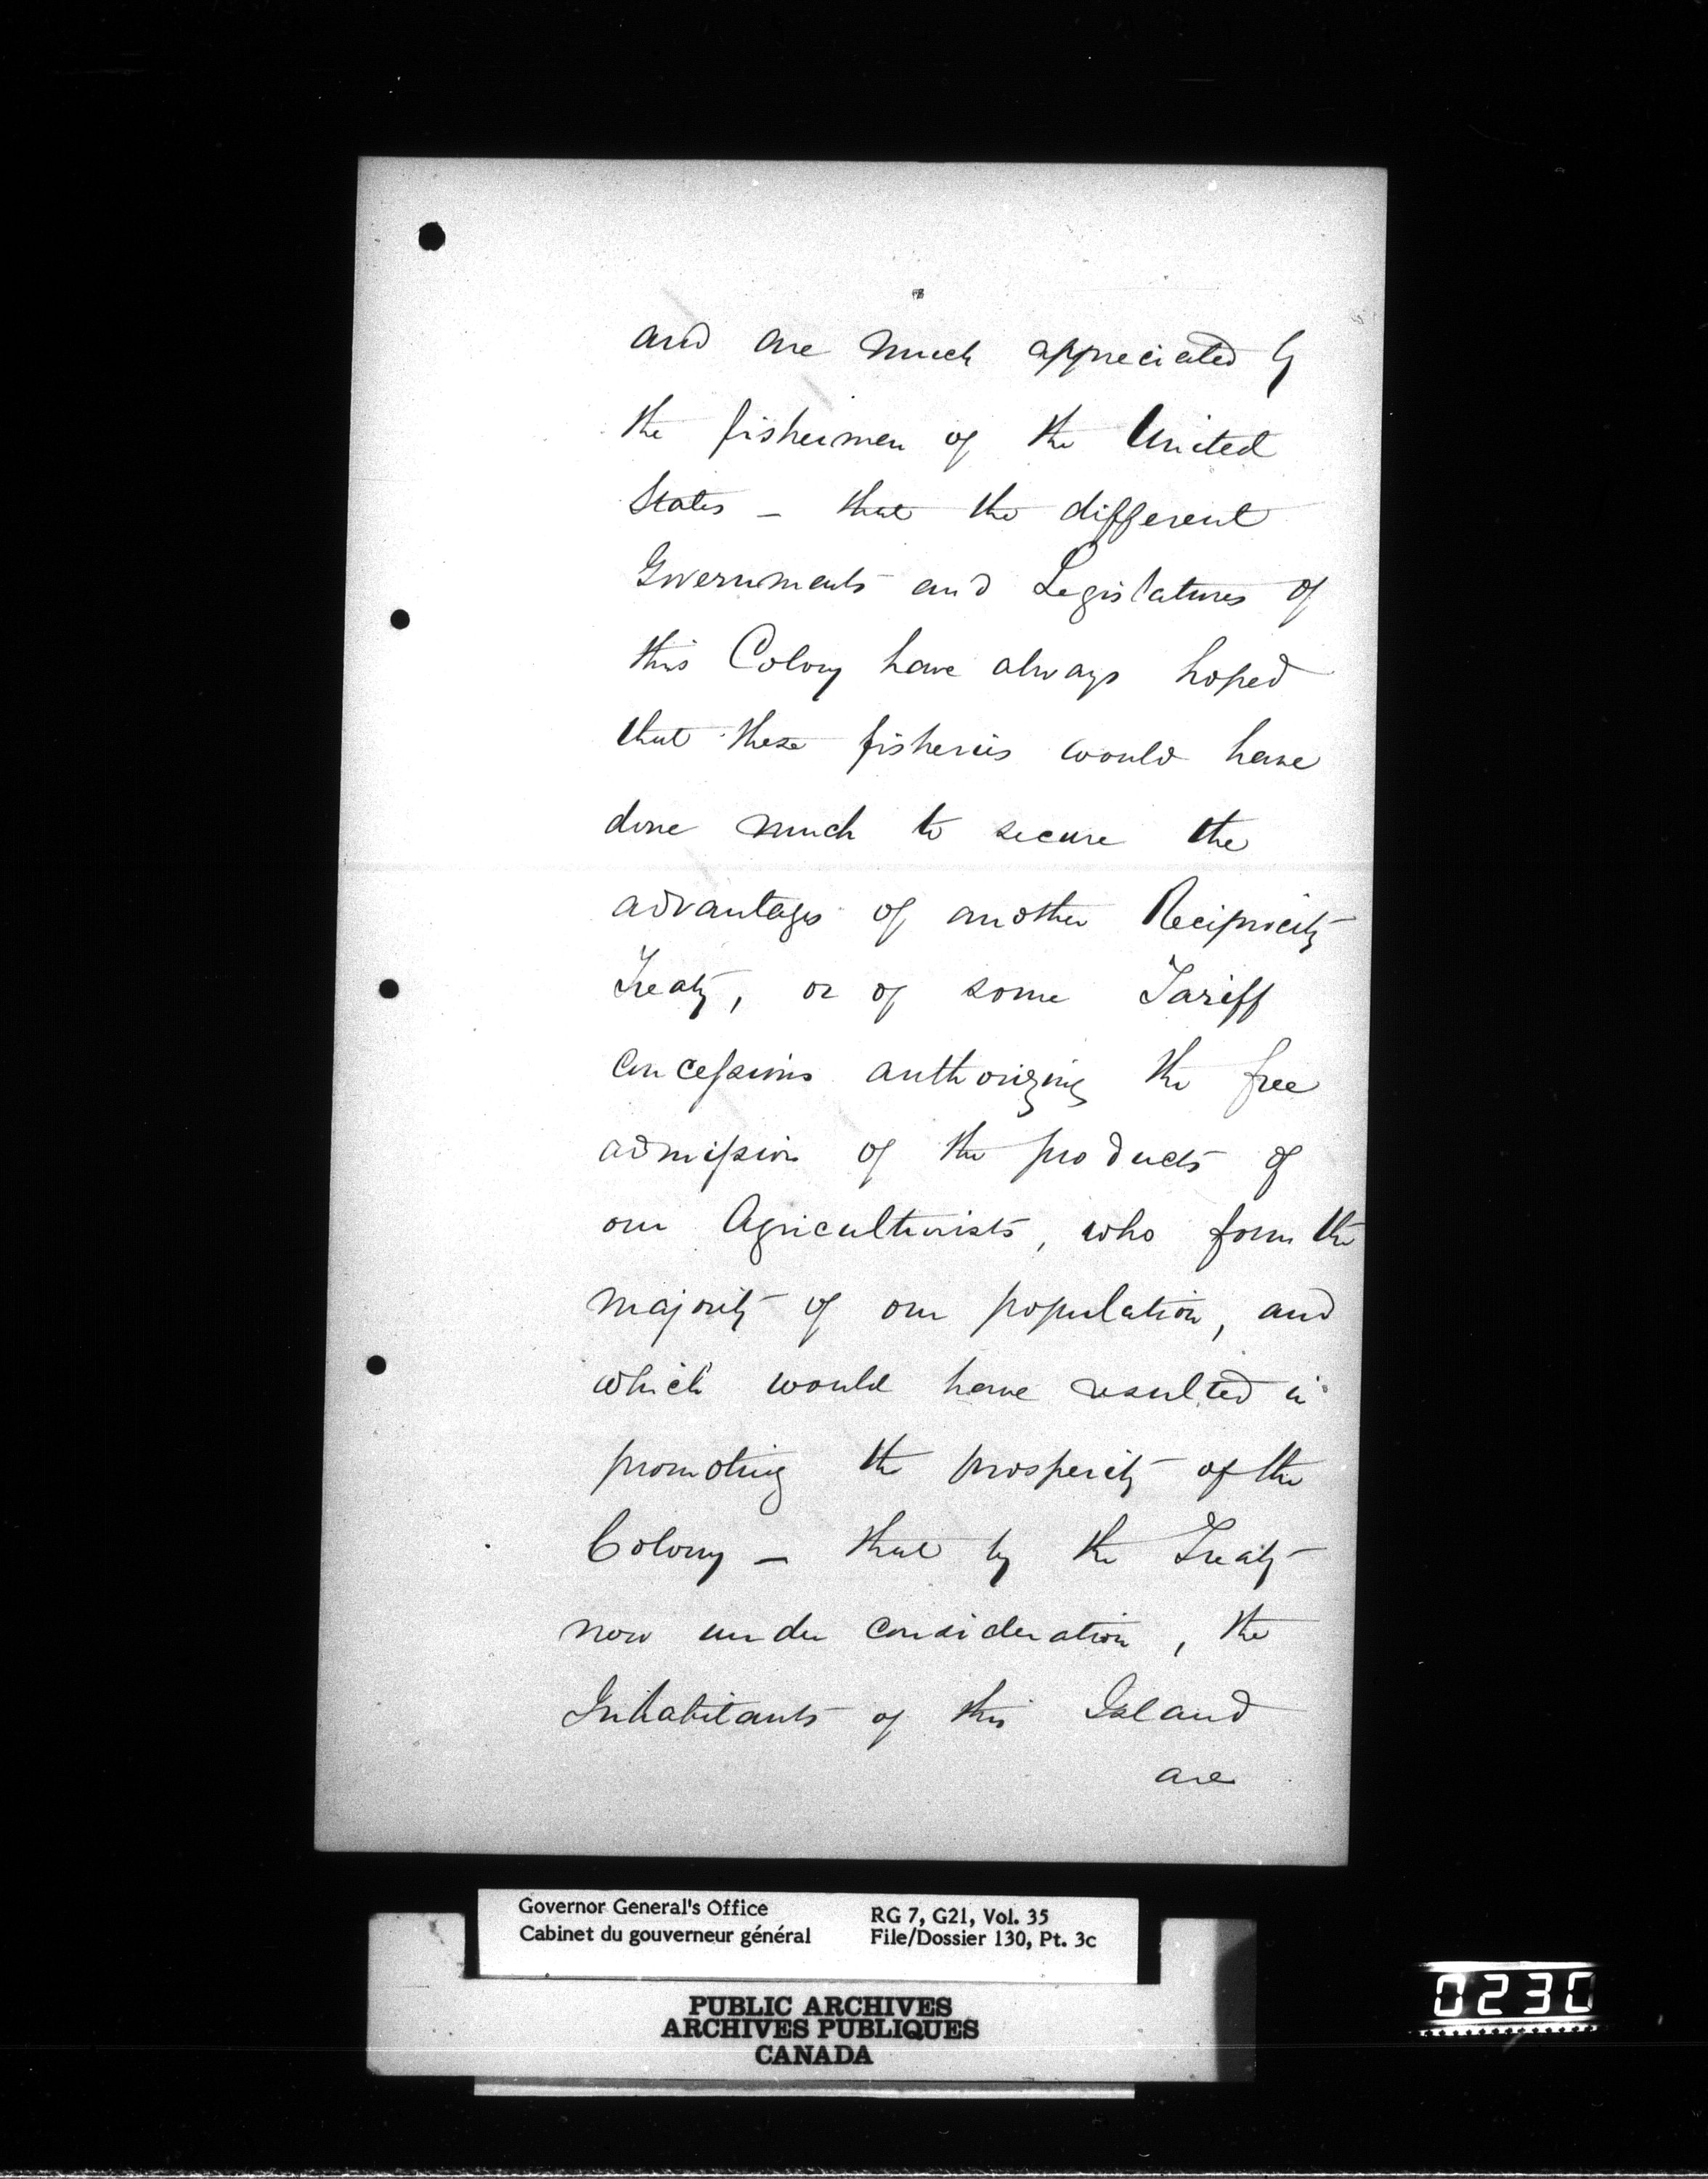 and are much appreciated by
the fishermen of the United
States – that the different
Governments and Legislatures of
this Colony have always hoped
that these fisheries would have
done much to secure the
advantages of another Reciprocity
Treaty, or of some Tariff
Concessions authorizing the free
admission of the products of
our Agriculturists, who form the
majority of our population, and
which would have resulted in
promoting the prosperity of the
Colony – that by the Treaty
now under consideration, the
Inhabitants of this Island
are
Governor General's Office
Cabinet du gouverneur général
RG 7, G21, Vol. 35
File/Dossier 130, Pt. 3c
PUBLIC ARCHIVES
ARCHIVES PUBLIQUES
CANADA
0230